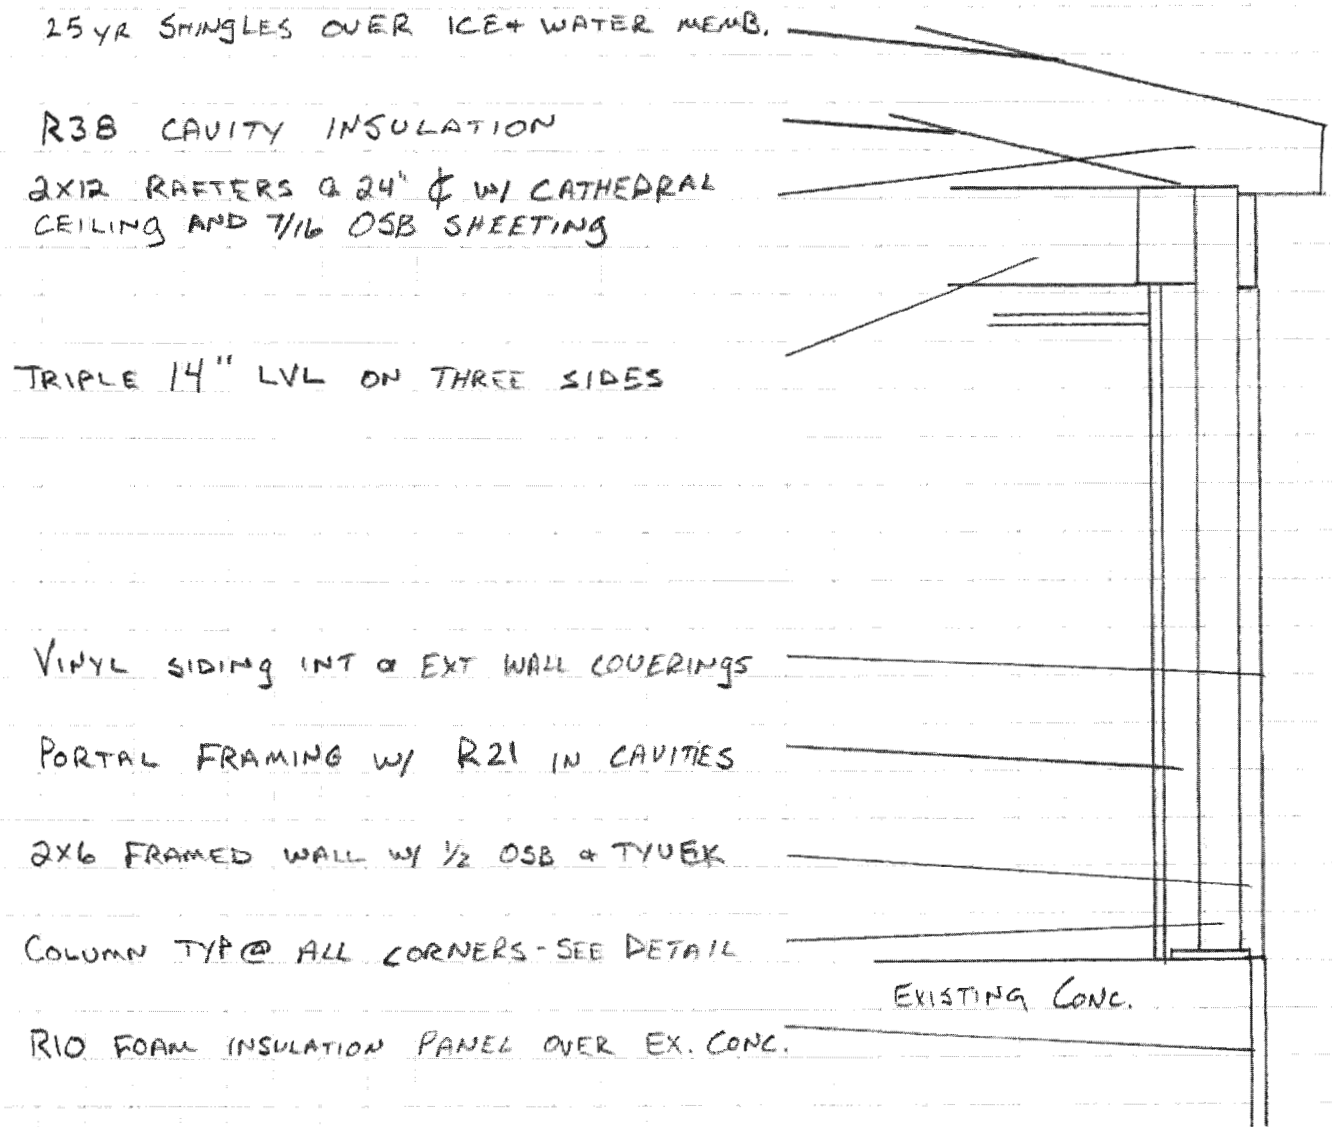 25 YR SHINGLES OVER ICE + WATER MEMB.
R38 CAVITY INSULATION
2X12 RAFTERS @ 24" ℄ W/ CATHEDRAL
CEILING AND 7/16 OSB SHEETING
TRIPLE 14" LVL ON THREE SIDES
VINYL SIDING INT & EXT WALL COVERINGS
PORTAL FRAMING W/ R21 IN CAVITIES
2X6 FRAMED WALL W/ 1/2 OSB & TYVEK
COLUMN TYP @ ALL CORNERS - SEE DETAIL
EXISTING CONC.
R10 FOAM INSULATION PANEL OVER EX. CONC.